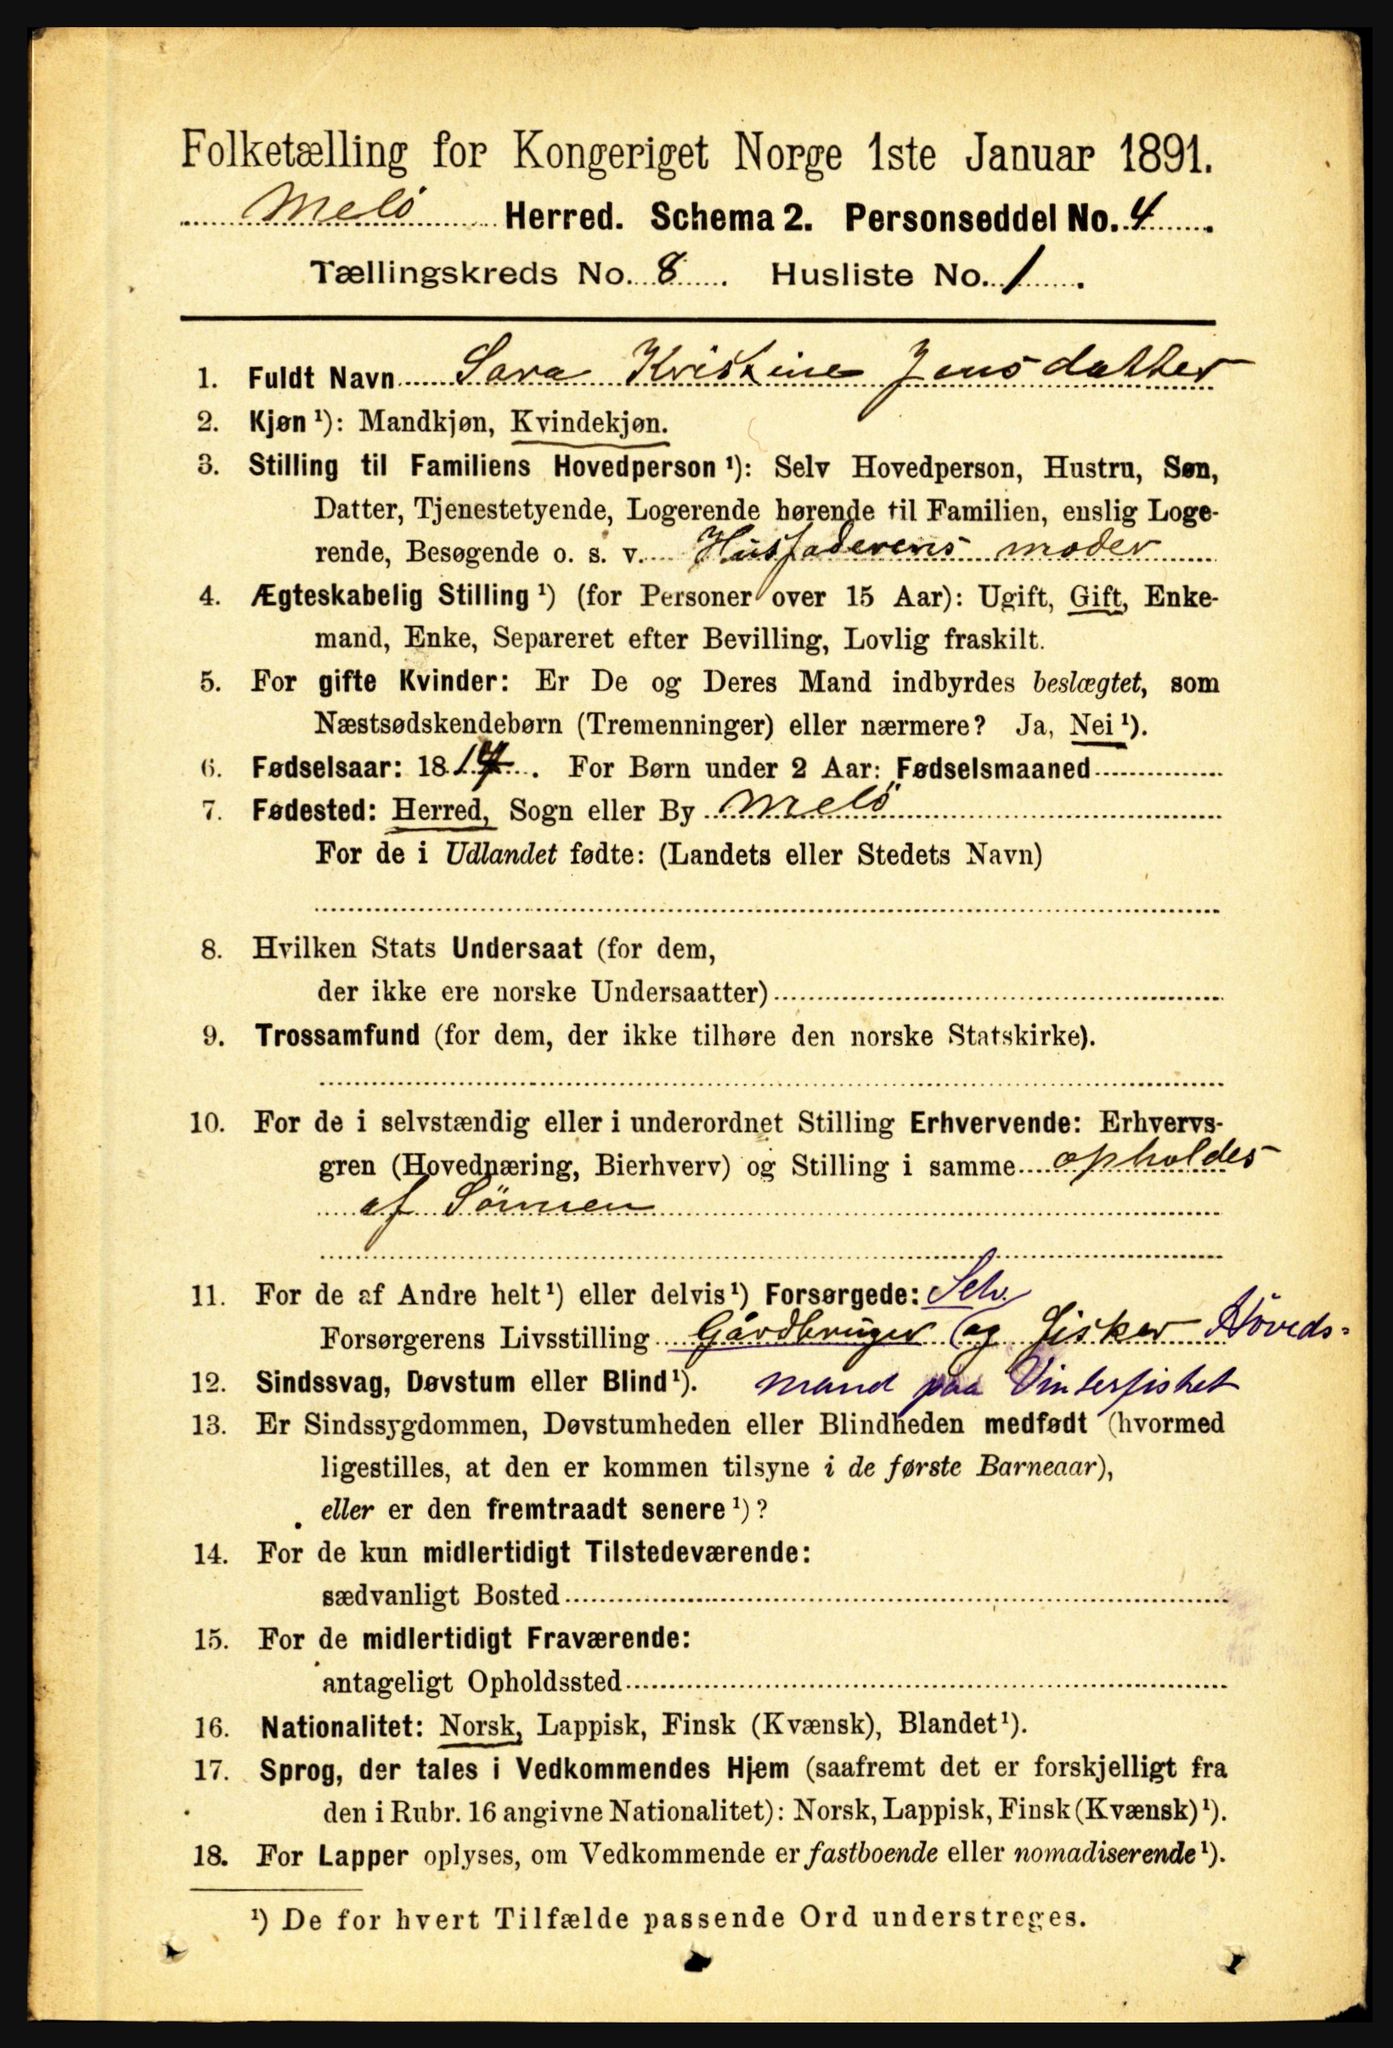 Folketælling for Kongeriget Norge 1ste Januar 1891.
Melö Herred. Schema 2. Personseddel No. 4.
Tællingskreds No. 8. Husliste No. 1.
1. Fuldt Navn Sara Kristine Jensdatter
2. Kjøn ¹): Mandkjøn, Kvindekjøn.
3. Stilling til Familiens Hovedperson ¹): Selv Hovedperson, Hustru, Søn,
Datter, Tjenestetyende, Logerende hørende til Familien, enslig Loge-
rende, Besøgende o. s. v. Husfaderens moder
4. Ægteskabelig Stilling ¹) (for Personer over 15 Aar): Ugift, Gift, Enke-
mand, Enke, Separeret efter Bevilling, Lovlig fraskilt.
5. For gifte Kvinder: Er De og Deres Mand indbyrdes beslægtet, som
Næstsødskendebørn (Tremenninger) eller nærmere? Ja, Nei ¹).
6. Fødselsaar: 1817. For Børn under 2 Aar: Fødselsmaaned
7. Fødested: Herred, Sogn eller By Melö
For de i Udlandet fødte: (Landets eller Stedets Navn)
8. Hvilken Stats Undersaat (for dem,
der ikke ere norske Undersaatter)
9. Trossamfund (for dem, der ikke tilhøre den norske Statskirke).
10. For de i selvstændig eller i underordnet Stilling Erhvervende: Erhvervs-
gren (Hovednæring, Bierhverv) og Stilling i samme opholdes
af Sönnen
11. For de af Andre helt ¹) eller delvis ¹) Forsørgede: Selv
Forsørgerens Livsstilling Gårdbruger og fisker Höveds-
12. Sindssvag, Døvstum eller Blind ¹). mand paa Vinterfisket
13. Er Sindssygdommen, Døvstumheden eller Blindheden medfødt (hvormed
ligestilles, at den er kommen tilsyne i de første Barneaar),
eller er den fremtraadt senere ¹)?
14. For de kun midlertidigt Tilstedeværende:
sædvanligt Bosted
15. For de midlertidigt Fraværende:
antageligt Opholdssted
16. Nationalitet: Norsk, Lappisk, Finsk (Kvænsk), Blandet ¹).
17. Sprog, der tales i Vedkommendes Hjem (saafremt det er forskjelligt fra
den i Rubr. 16 angivne Nationalitet): Norsk, Lappisk, Finsk (Kvænsk) ¹).
18. For Lapper oplyses, om Vedkommende er fastboende eller nomadiserende ¹).
¹) De for hvert Tilfælde passende Ord understreges.